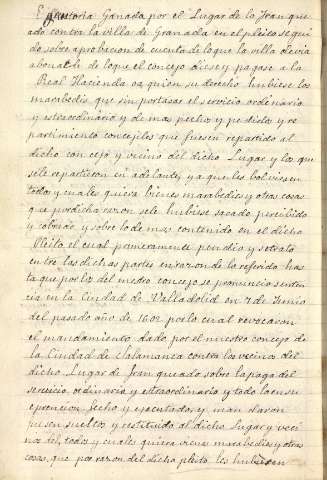 Ejecutoria Ganada por el Lugar de la Granque
ado contra la villa de Granada en el pleito segui
do sobre aprobacion de cuenta de lo que la villa devia
abonarle de lo que el concejo diese y pagase a la
Real Hacienda o a quien su derecho hubiese los
marabedis que importasas el servicio ordinario
y estraordinario y de mas pechos y pedidos y re
partimiento concejiles que fuesen repartido al
dicho concejo y vecino del dicho Lugar y los que
se le repartieron en adelante, y a que les bolviesen
todos y cuales quiera bienes marabedis y otras cosas
que por dicha razon se le hubiese sacado percibido
y cobrado y sobre lo de mas contenido en el dicho
Pleito, el cual primeramente pendio y se trato
entre las dichas partes en razon de lo referido has
ta que por los del nuestro consejo se pronuncio senten
cia en la Ciudad de Valladolid en 7 de Junio
del pasado año de 1602 por lo cual revocaron
el mandamiento dado por el nuestro concejo de
la Ciudad de Salamanca contra los vecinos del
dicho Lugar de Granqueado sobre la paga del
servicio, ordinario y estraordinario y todo lo en su
egecucion fecho y ejecutado, y mandaron
fuesen sueltos y restituido al dicho Lugar y veci
nos del, todos y cuales quiera vienes marabedis y otras
cosas, que por razon del dicho pleito les hubiesen